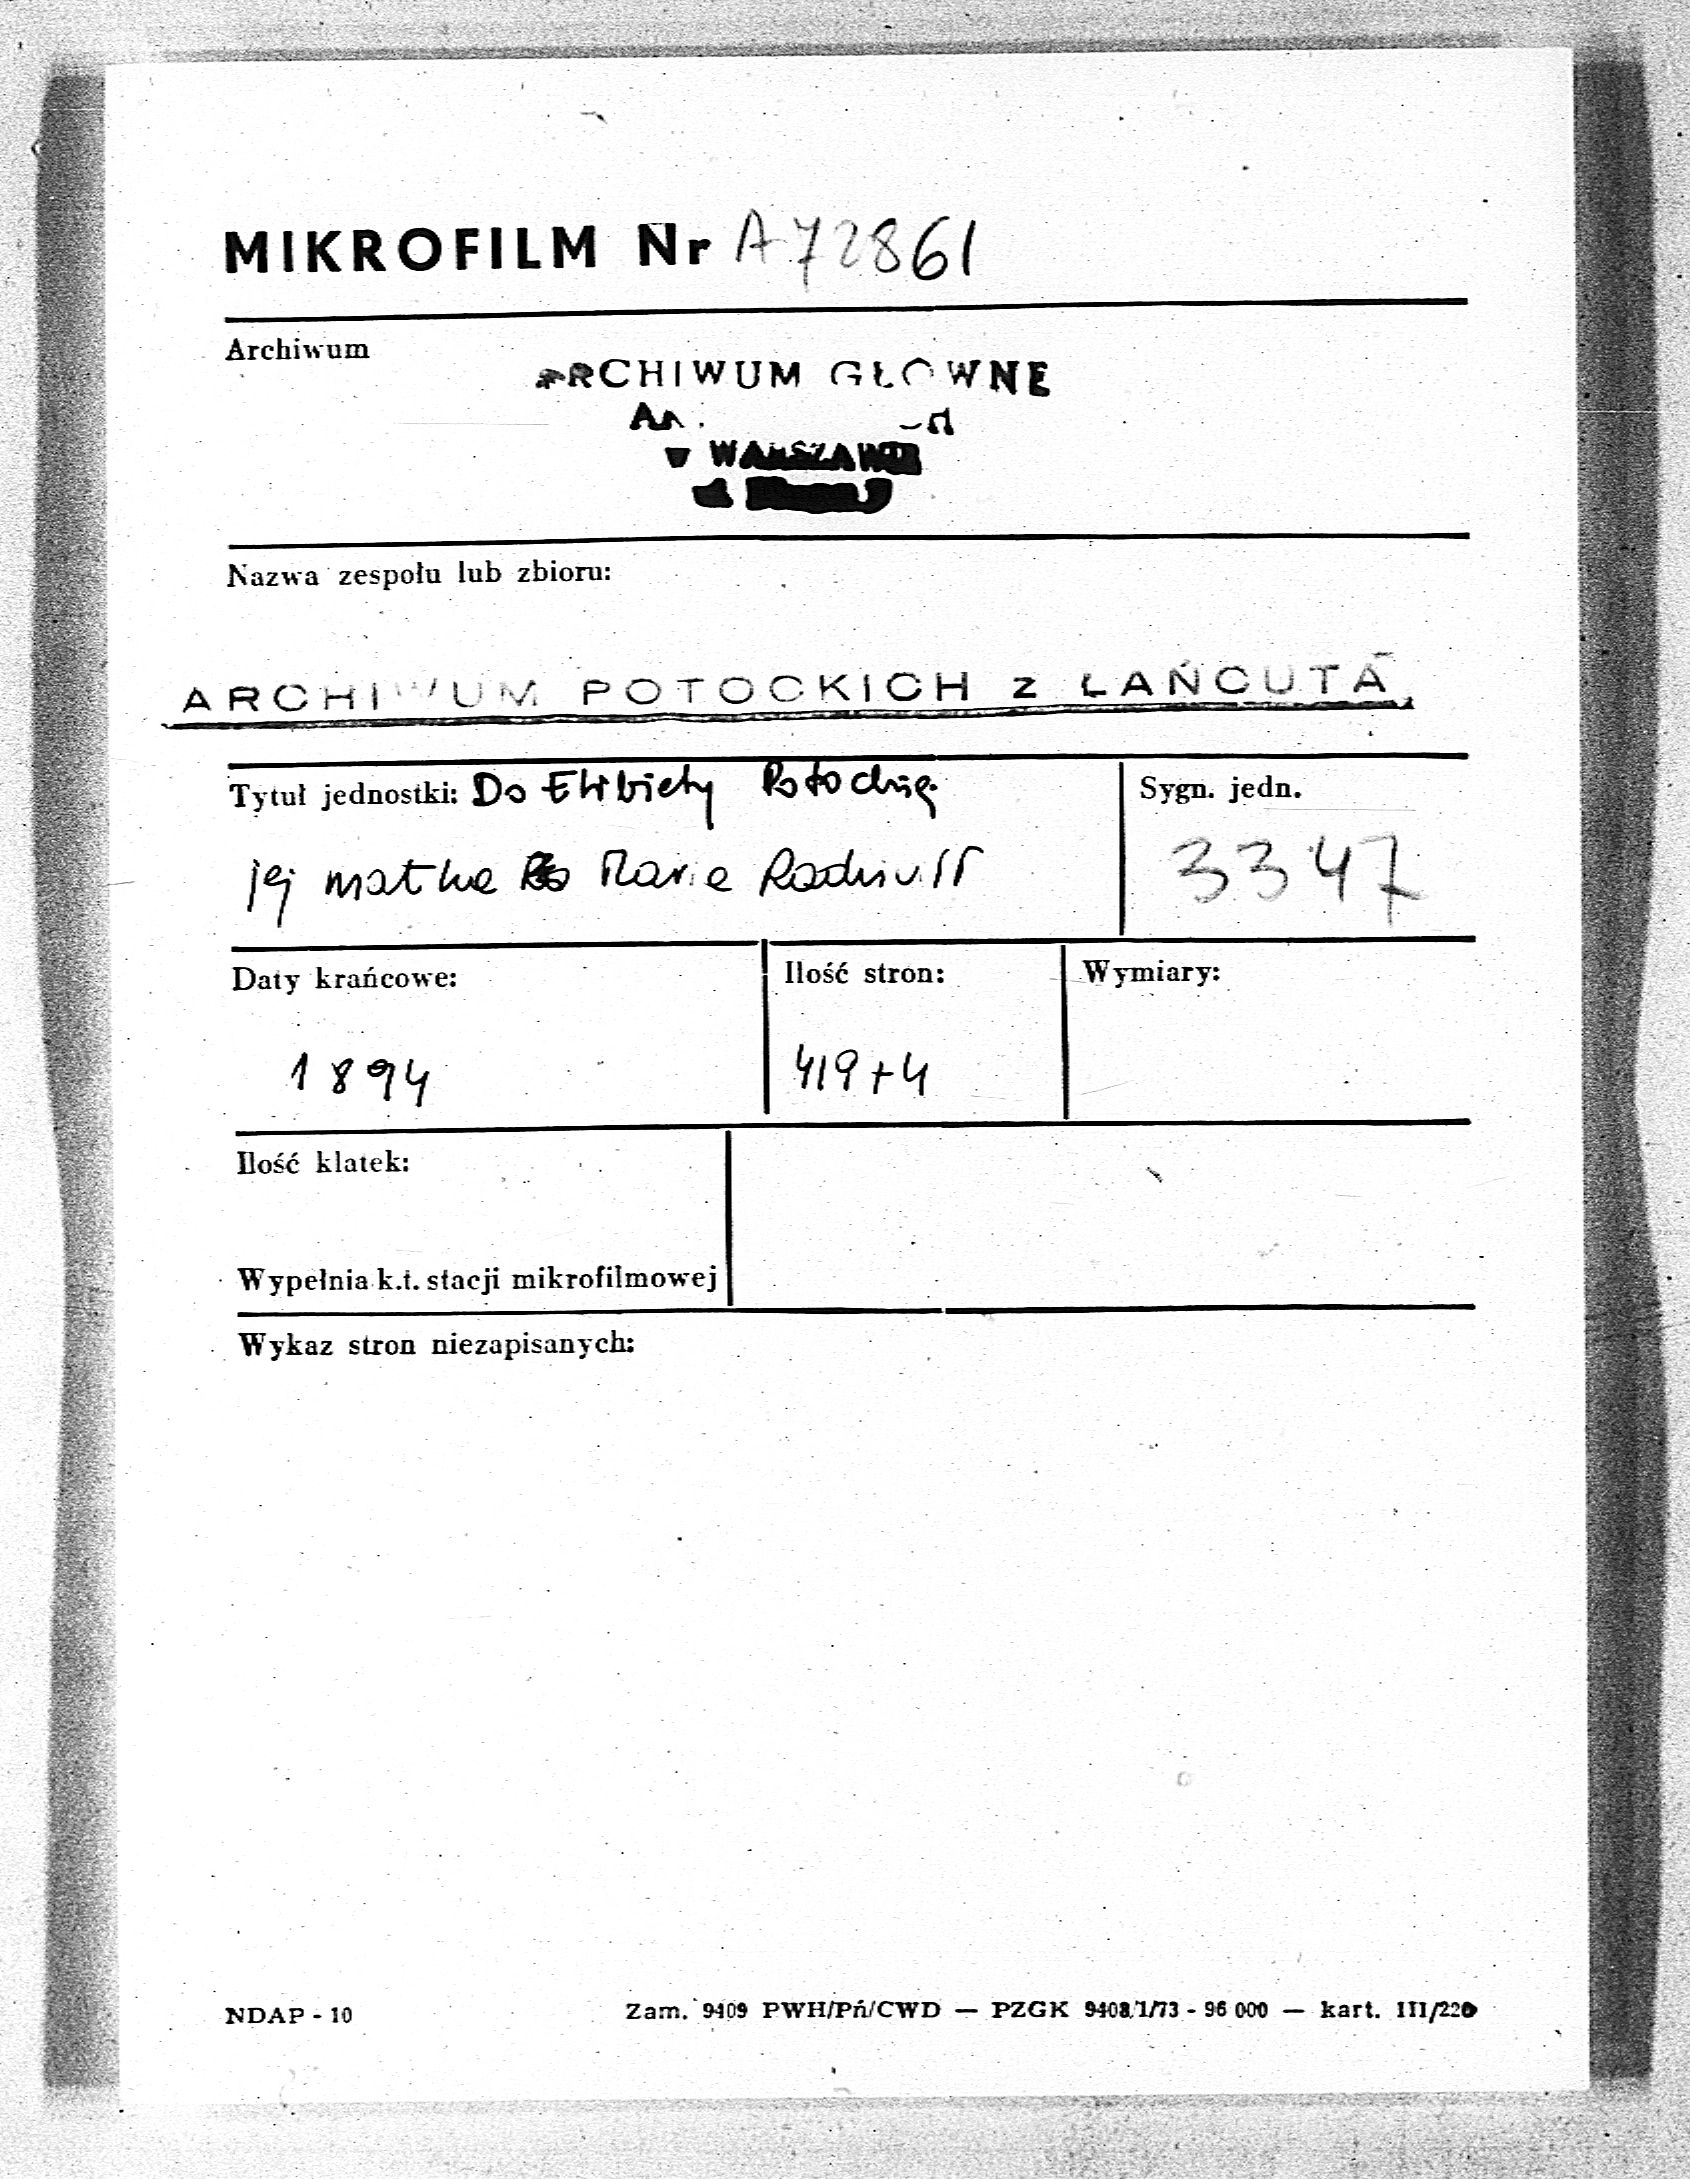 MIKROFILM Nr A72861
Archiwum
ARCHIWUM GŁÓWNE
w WARSZAWIE
Nazwa zespołu lub zbioru:
ARCHIWUM POTOCKICH z ŁAŃCUTA
Tytuł jednostki: Do Elżbiety Potockiej
Sygn. jedn.
jej matka Maria Radziwiłł
3347
Daty krańcowe:
Ilość stron:
Wymiary:
1894
419+4
Ilość klatek:
Wypełnia k.t. stacji mikrofilmowej
Wykaz stron niezapisanych:
NDAP - 10
Zam. 9409 PWH/Pń/CWD — PZGK 9408/1/73 - 96 000 — kart. III/220